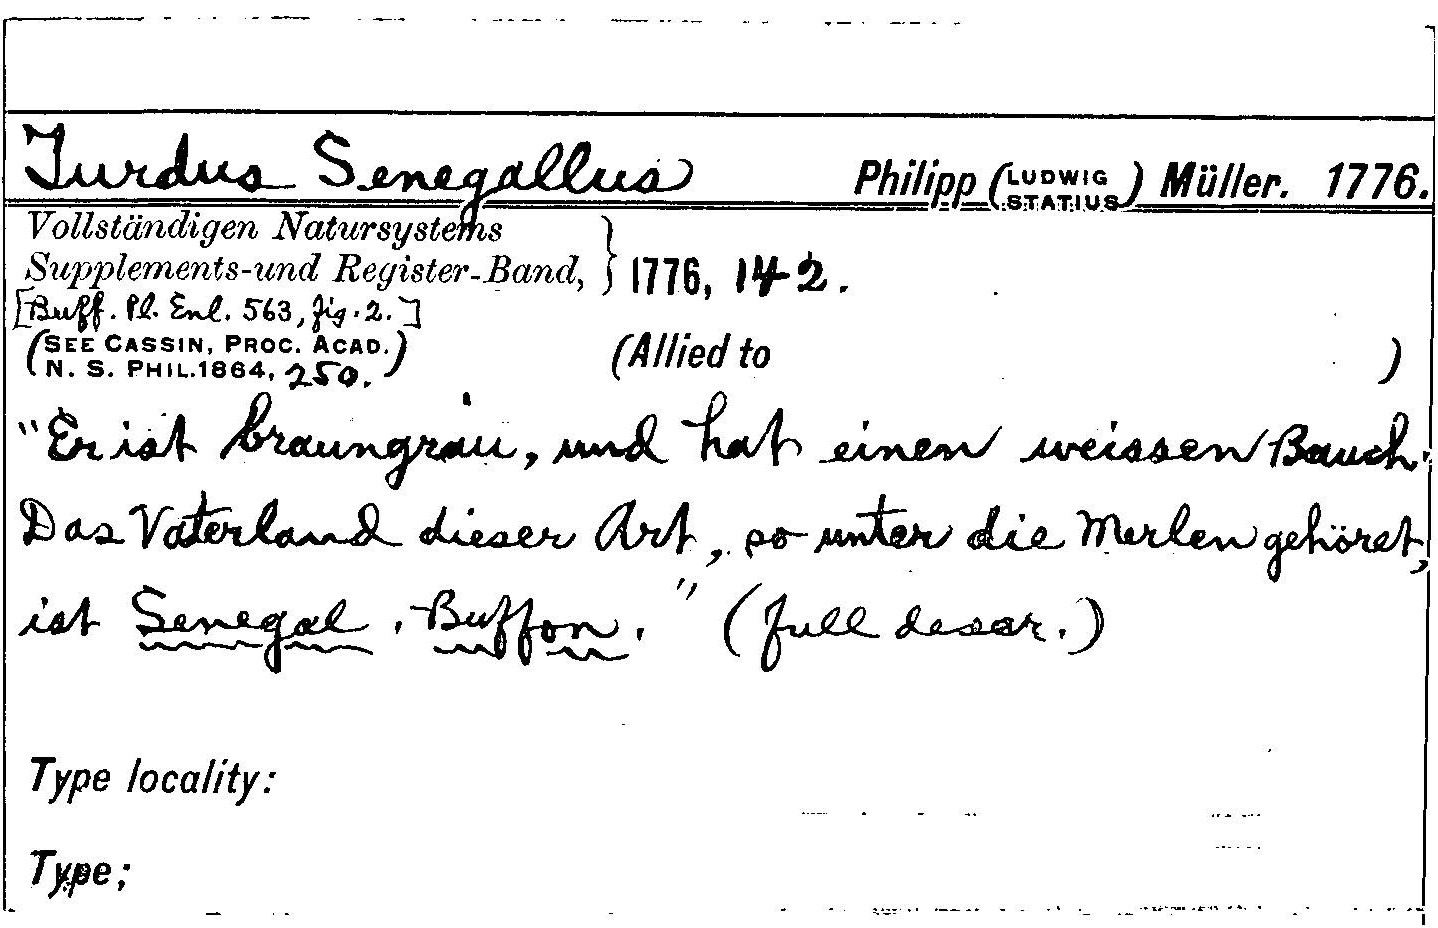 Turdus Senegallus Philipp (LUDWIG STATIUS) Müller. 1776.
Vollständigen Natursystems
Supplements-und Register-Band, } 1776, 142.
[Buff. Pl. Enl. 563, fig. 2.]
(SEE CASSIN, PROC. ACAD.
N. S. PHIL. 1864, 250.)
(Allied to )
"Er ist braungrau, und hat einen weissen Bauch.
Das Vaterland dieser Art, so unter die Merlen gehöret,
ist Senegal. Buffon." (full descr.)
Type locality:
Type;